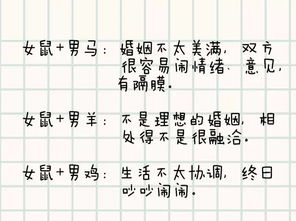 女鼠+男马：婚姻不太美满，双方
很容易闹情绪、意见，
有隔膜。
女鼠+男羊：不是理想的婚姻，相
处得不是很融洽。
女鼠+男鸡：生活不太协调，终日
吵吵闹闹。